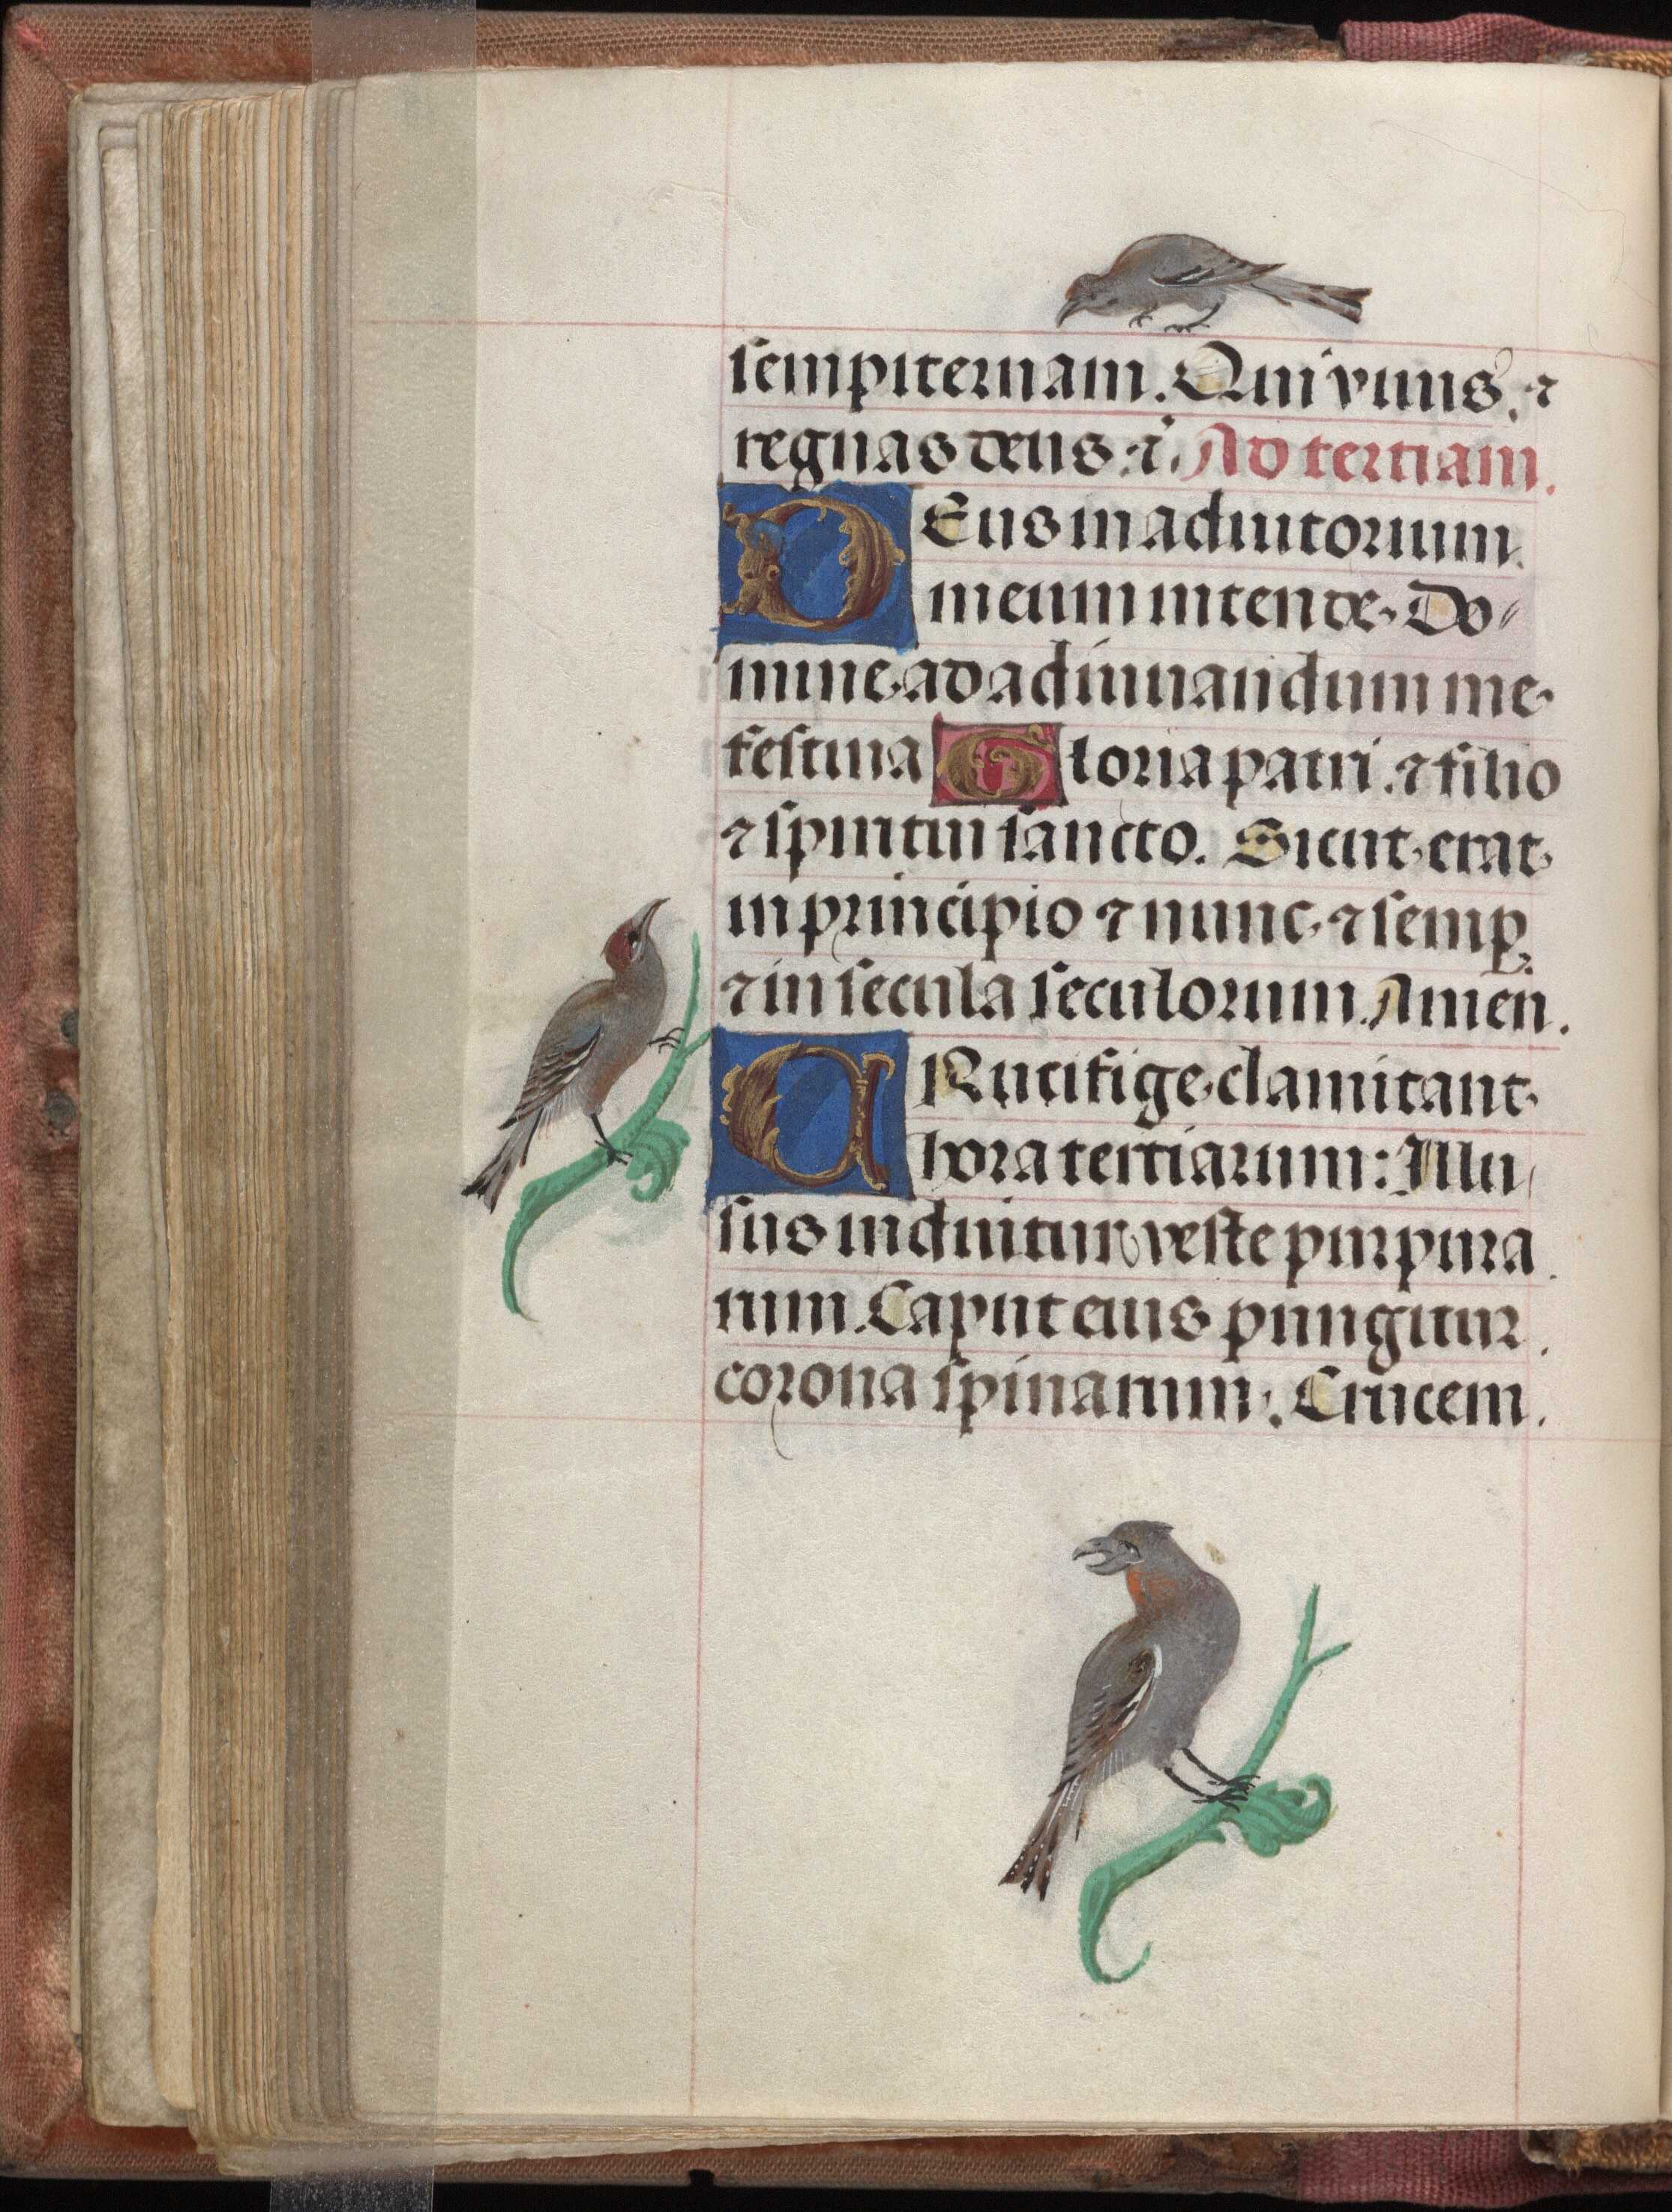 sempiternam. Qui viuis. ⁊
regnas deus. ⁊. Ad tertiam.
DEus in adiutorium
meum intende. Do
mine. ad adiuuandum me.
festina Gloria patri. ⁊ filio
⁊ spiritui sancto. Sicut. erat.
in principio ⁊ nunc. ⁊ semꝑ.
⁊ in secula seculorum. Amen.
CRucifige. clamitant.
hora tertiarum: Illu
sus induitur veste purpura
rum. Caput eius pungitur.
corona spinarum. Crucem.